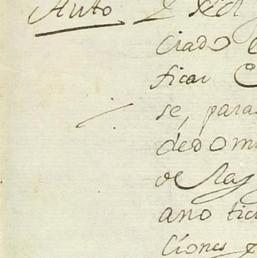 Auto
ciado
ficar
se, para
dedom
de las
ano tic
ciones